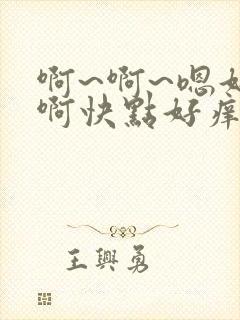 啊~啊~嗯好
啊快點好痒
王興勇